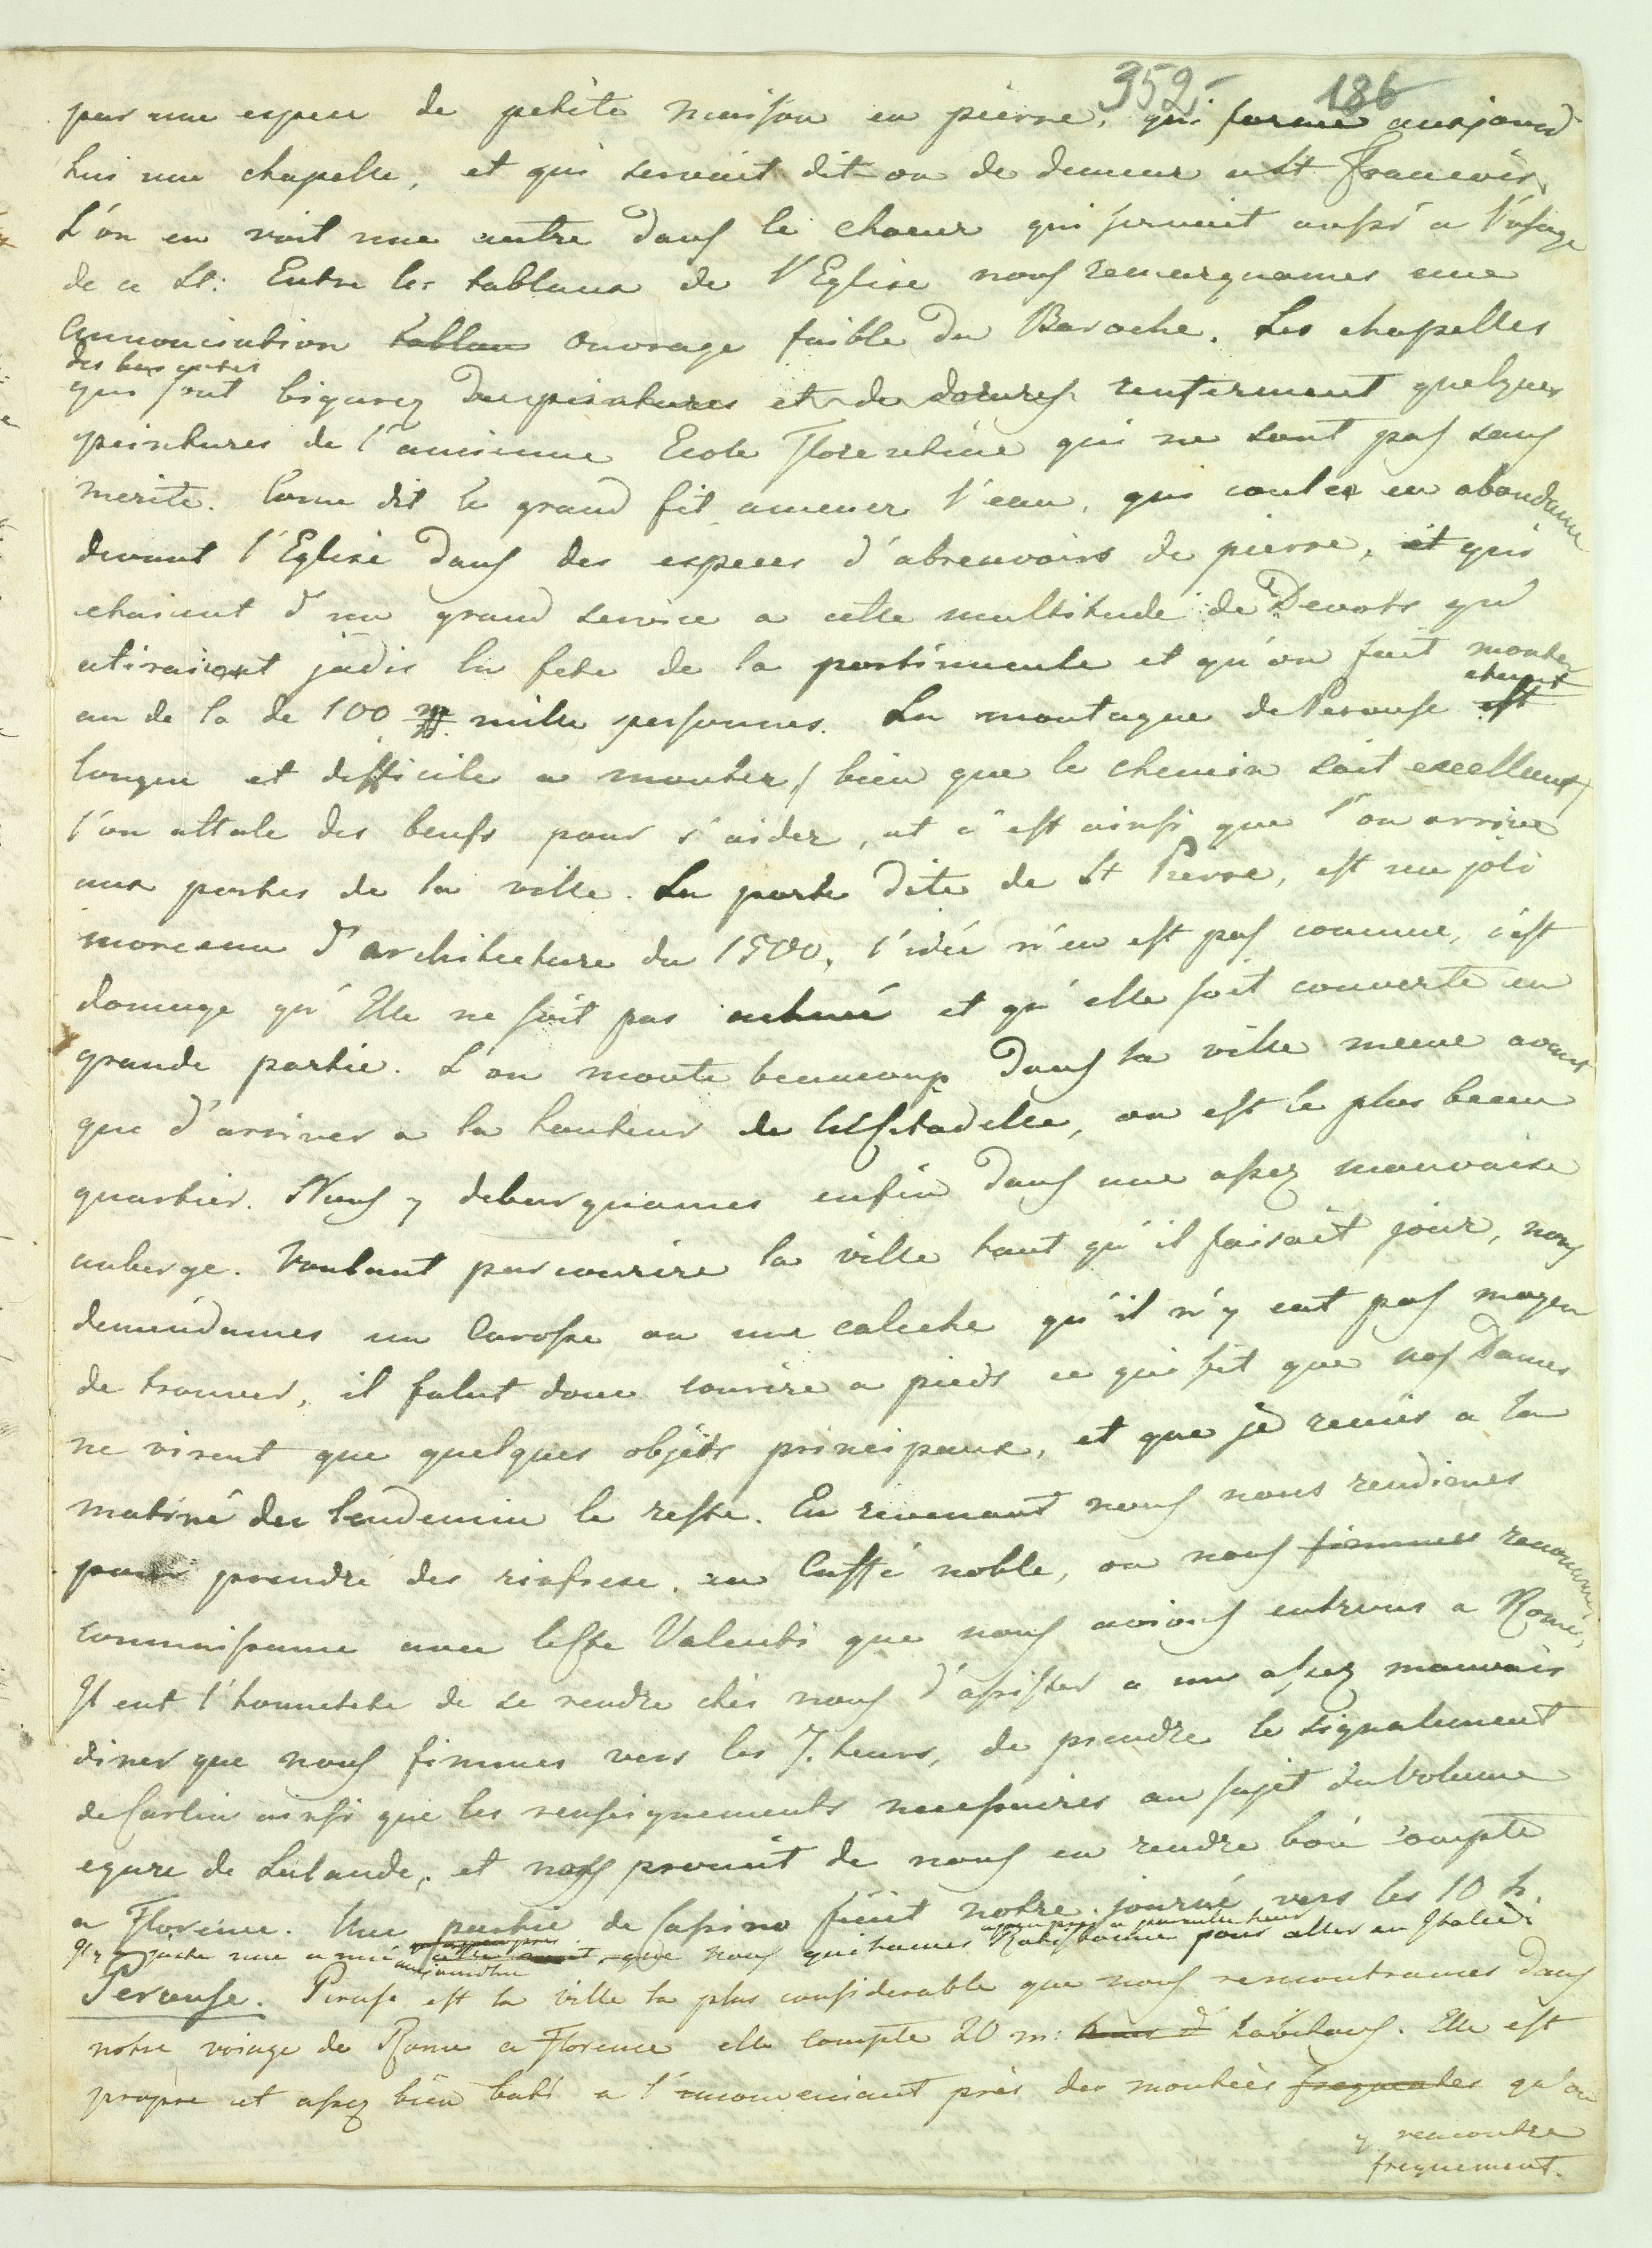 352 186
par une espece de petite maison en pierre, qui forme aujourd
hui une chapelle, et qui servait dit on de demeur a St François,
L'on en voit une autre dans le choeur qui servait aussi a l'usage
de ce St: Entre les tableaux de l'Eglise nous remarquames une
Annonciation tableau ouvrage faible du Baroche. Les chapelles
des bas cotés
qui sont bigarez de peintures et de dorures renferment quelques
peintures de l'ancienne Ecole Florentine qui ne sont pas sans
merite. Come dit le grand fit amener l'eau, qui coule en abondance
devant l'Eglise dans des especes d'abreuvoirs de pierre, et qui
etaient d'un grand service a cette multitude de Devots qu'
atiraient jadis la fete de la portiuncule et qu'on fait monter
au de la de 100 m mille personnes. La montagne de Perouse est
etant
longue et difficile a monter, / bien que le chemin soit excellent /
l'on attale des beufs pour s'aider, et c'est ainsi que l'on arrive
aux portes de la ville. La porte dite de St Pierre, est un joli
morceau d'architecture du 1500, l'idée n'en est pas comune, c'est
domage qu'Elle ne soit pas achevé et qu'elle soit couverte en
grande partie. L'on monte beaucoup dans la ville meme avant
que d'arriver a la hauteur de la Citadelle, ou est le plus beau
quartier. Nous y debarquames enfin dans une assez mauvaise
auberge. Voulant parcourire la ville tant qu'il faisait jour, nous
demendames un Carosse ou une caleche qu'il n'y eut pas moyen
de trouver, il falut donc courire a pieds ce qui fit que nos Dames
ne virent que quelques objets principaux, et que je remis a la
matiné du lendemin le reste. En revenant nous nous rendimes
pour prendre des rinfresc. au Caffé noble, ou nous fimmes renouvell.
connaissance avec le Valenti que nous avions entrevus a Rome,
Il eut l'honnetete de se rendre chés nous d'assister a un assez mauvais
diner que nous fimmes vers les 7. heurs, de prendre le signalement
de Carlin ainsi que les renseignements necessaires au sujet du Volume
egaré de Lalande, et nous promit de nous en rendre bon compte
a Florence. Une partie de Cassino finit notre journé vers les 10 h.
Il y a juste une anné aujourdhui que nous quitames Ratisbonne pour aller en Italie.
Perouse. Peruse est la ville la plus considerable que nous rencontrames dans
notre voiage de Rome a Florence elle compte 20 m: habitans. Elle est
propre et assez bien bati a l'inconveniant près des montées frequentes qu'on
y rencontre
frequement.